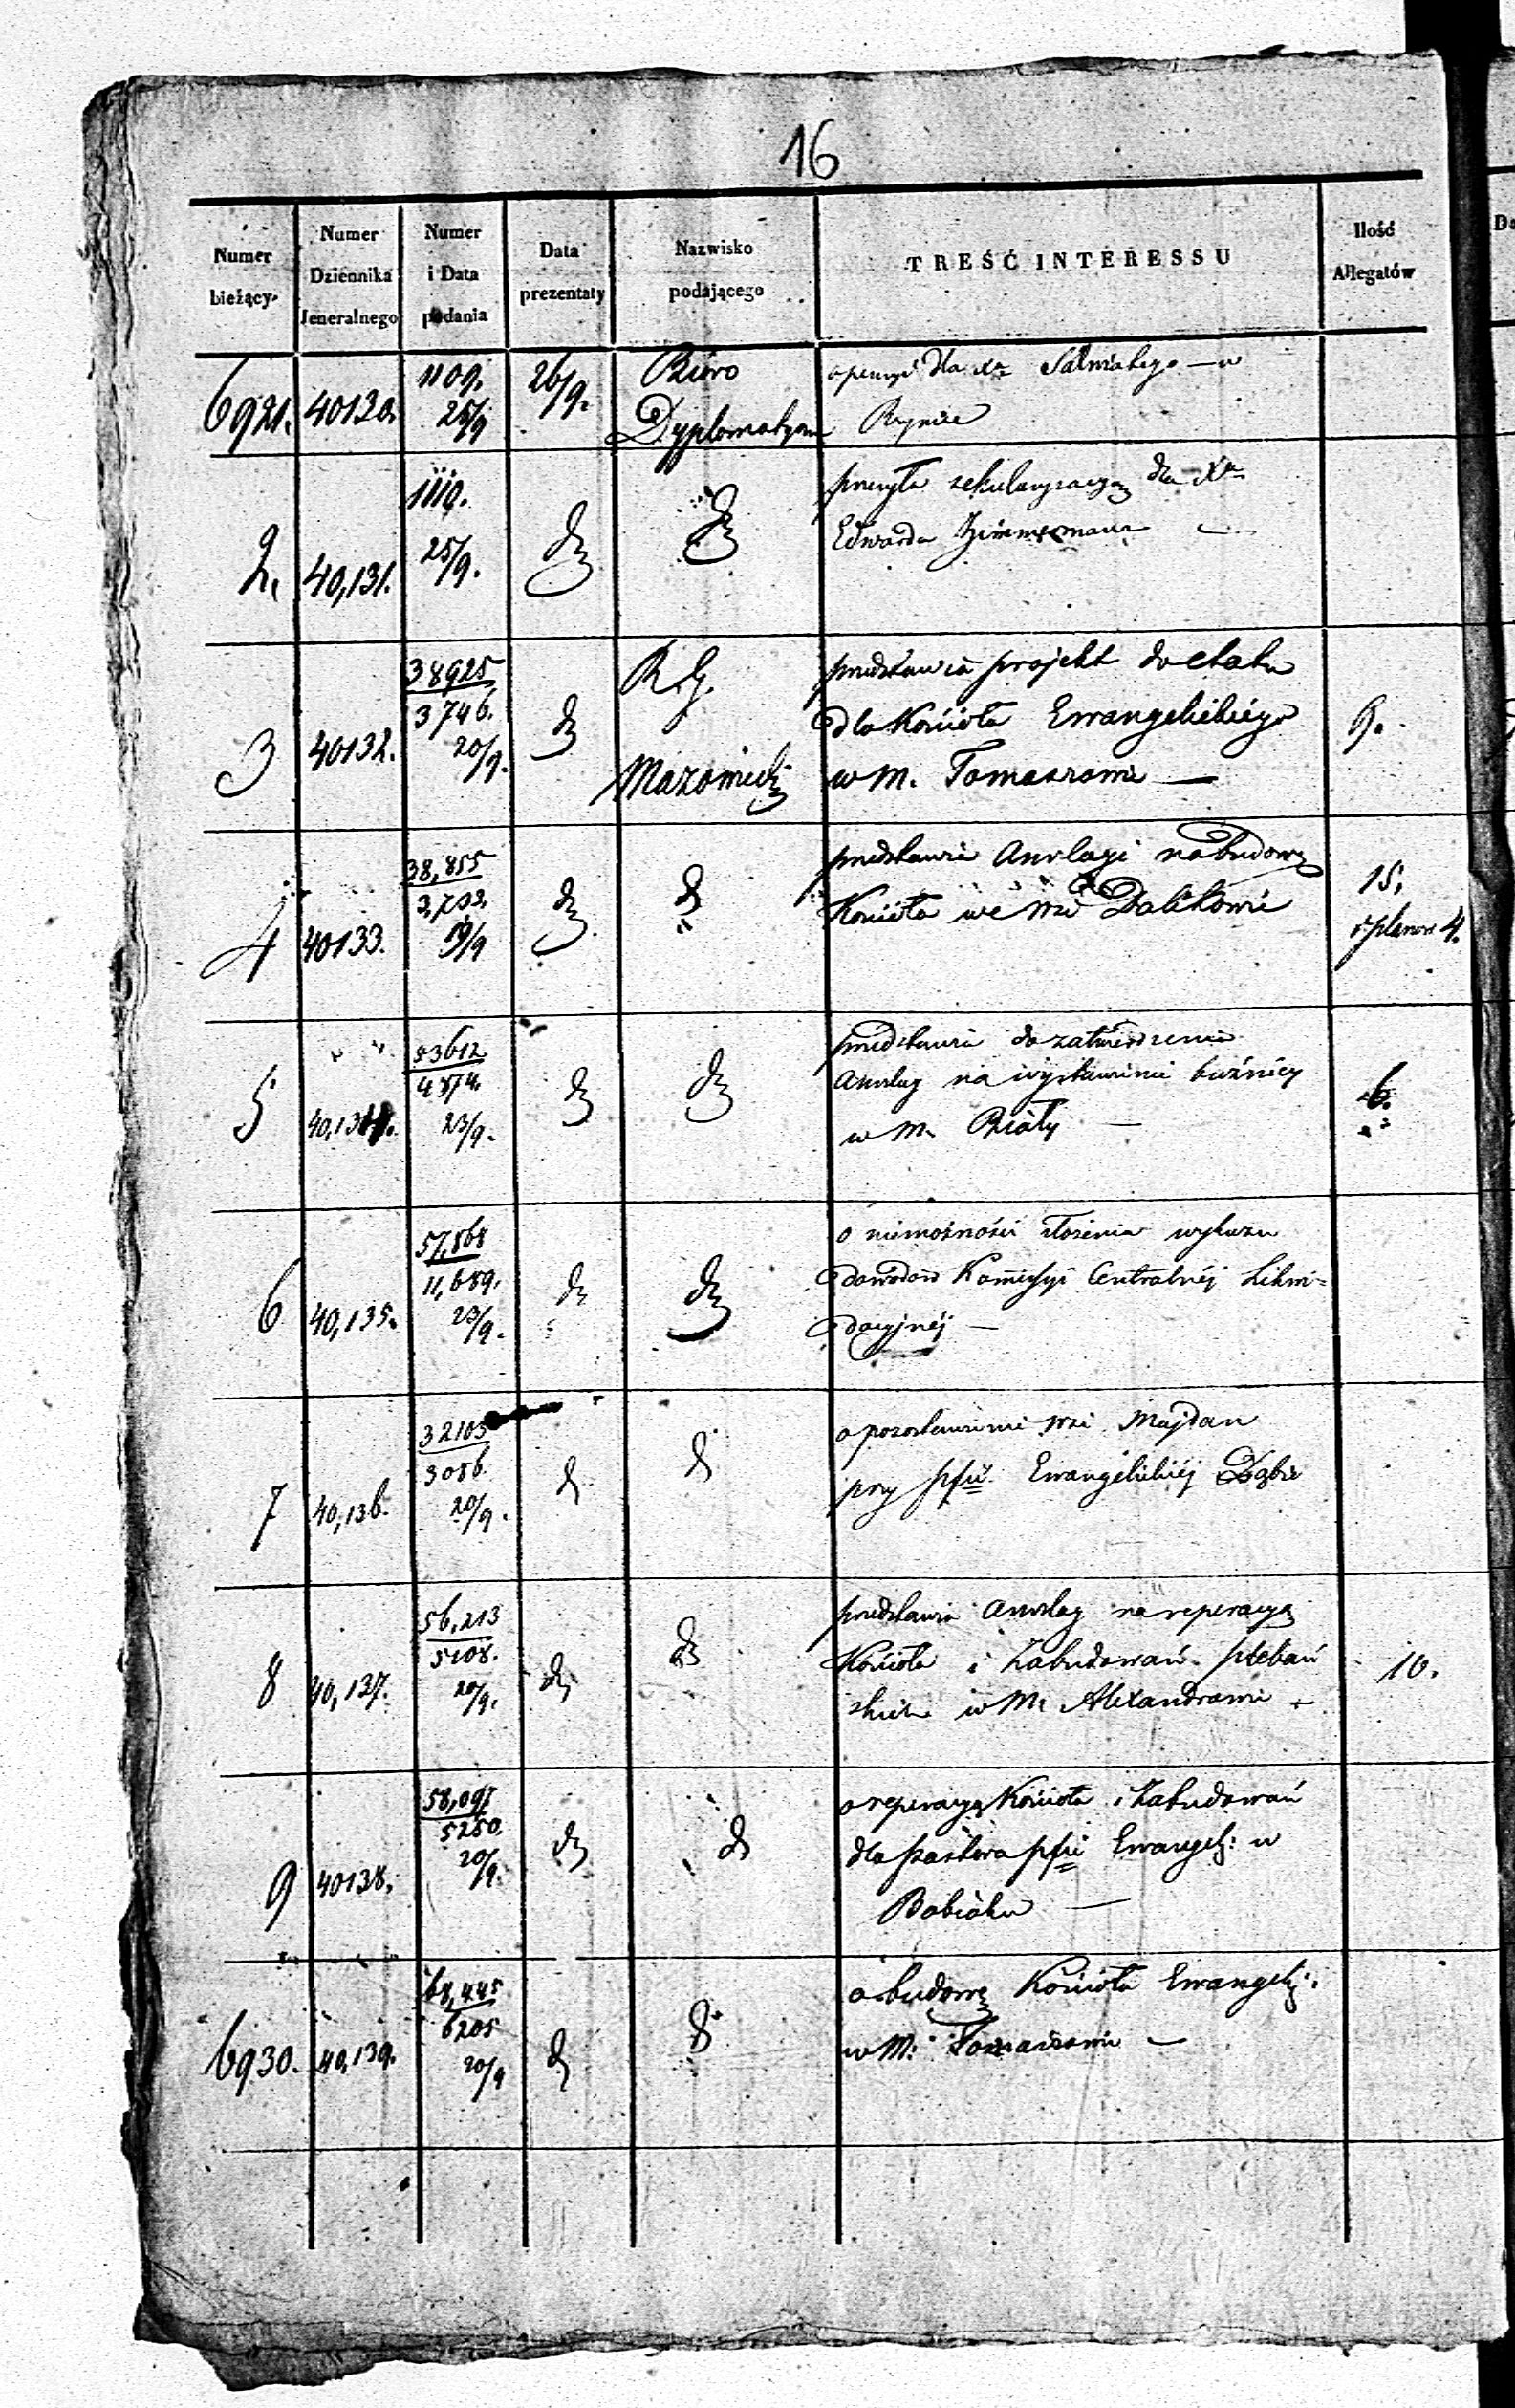 16
Numer bieżący.
Numer Dziennika Jeneralnego
Numer i Data podania
Data prezentaty
Nazwisko podającego
TREŚĆ INTERESSU
Ilość Allegatów
6921. 40130. 1109. 25/9 26/9. Biuro
Dyplomatyczne
dla Xa w
Rzymie
2. 40,131. 1110. 25/9. dto dto
przesyła sekularyzacyą dla Xa
Edwarda Zimmermana —
3 40132. 38925 3746. 20/9. dto R. G.
Mazowiecki
przedstawia projekt do etatu
dla Kościoła Ewangelickiego
w M. Tomaszowie —
9.
4 40133. 38,855 19/9 dto dto
przedstawia Anszlagi na budowę
Kościoła we wsi Dalikowie
15.
i planów 4.
5 40,134. 53612 4374. 23/9. dto dto
przedstawia do zatwierdzenia
Anszlag na wystawienie bużnicy
w M. Biały —
6.
6 40,135. 57,868 11,689. 23/9. dto dto
o niemożności złożenia wykazu
dowodów Kommissyi Centralnéj Likwi=
dacyjnéj —
7 40,136. 32103 3086. 20/9. dto dto
o pozostawienie wsi Majdan
przy pfii Ewangelickiéj Dąbie
8 40,137. 56,213 5108. 20/9. dto dto
przedstawia Anszlag na reperacyą
Kościoła i Zabudowań pleban
skich w M. Alexandrowie —
10.
9 40138. 58,097 5250. 20/9. dto dto
o reperacyą Kościoła i Zabudowań
dla pastora pfii Ewangel: w
Babiaku —
6930. 40,139. 68,445 6205 20/9 dto dto
o budowę Kościoła Ewangel:
w M: Tomaszowie —